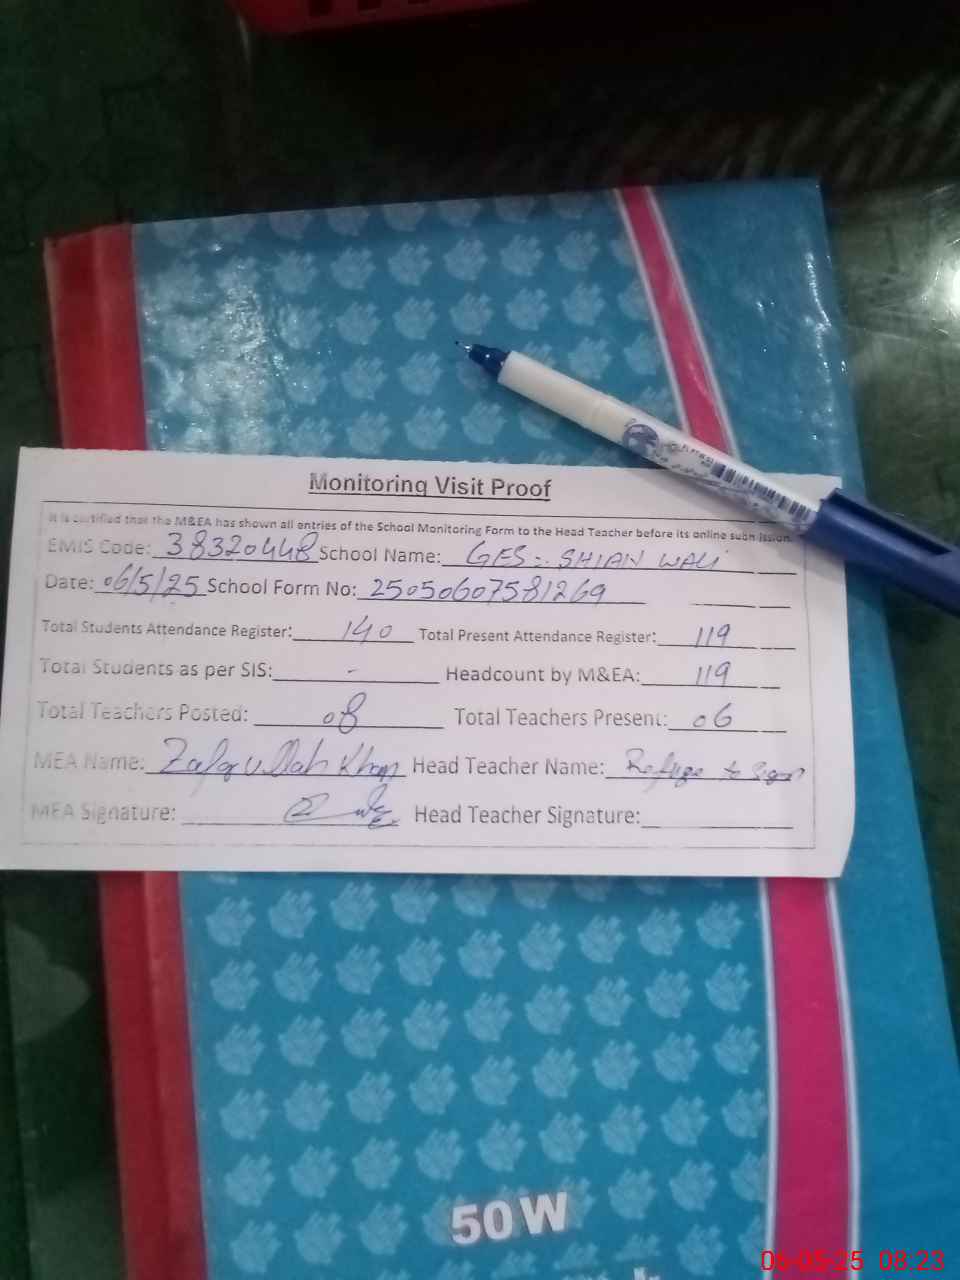 Monitoring Visit Proof
It is certified that the M&EA has shown all entries of the School Monitoring Form to the Head Teacher before its online submission.
EMIS Code: 38320448 School Name: GES :- SHIAN WALI
Date: 06/5/25 School Form No: 25050607581269
Total Students Attendance Register: 140 Total Present Attendance Register: 119
Total Students as per SIS: - Headcount by M&EA: 119
Total Teachers Posted: 08 Total Teachers Present: 06
MEA Name: Zafar Ullah Khan Head Teacher Name: Refuge to Sign
MEA Signature: Head Teacher Signature:
50 W
06-05-25 08:23